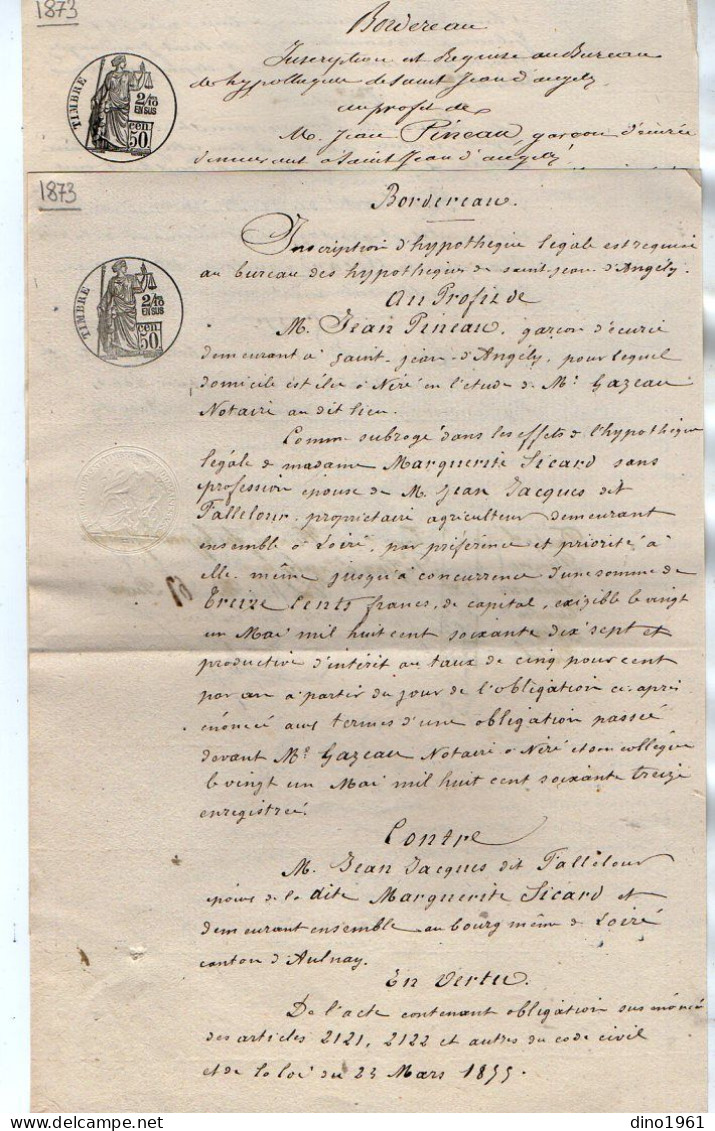 1873
Bordereau
Inscription est Requise au Bureau
des hypotheques de Saint Jean d'angely
au profit de
M. Jean Pineau, garçon d'écurie
demeurant à Saint Jean d'angély
TIMBRE
2/10
EN SUS
cen.
50
1873
Bordereau.
Inscription d'hypothèque légale est requise
au bureau des hypothèques de saint-jean-d'Angély.
Au Profit de
M. Jean Pineau, garçon d'écurie
demeurant à saint-jean-d'Angély, pour lequel
domicile est élu à Néré en l'étude de Me Gazeau
Notaire au dit lieu.
Comme subrogé dans les effets de l'hypothèque
légale de madame Marguerite Sicard sans
profession épouse de M. Jean Jacques dit
Tallelour, propriétaire agriculteur demeurant
ensemble à Loiré, par préférence et priorité à
elle-même jusqu'à concurrence d'une somme de
Treize Cents francs, de capital, exigible le vingt
un Mai mil huit cent soixante dix sept et
productive d'intérêt au taux de cinq pour cent
par an à partir du jour de l'obligation ci-après
énoncé aux termes d'une obligation passée
devant Me Gazeau Notaire à Néré et son collègue
le vingt un Mai mil huit cent soixante treize
enregistrée.
Contre
M. Jean Jacques dit Tallelour
époux de la dite Marguerite Sicard et
demeurant ensemble au bourg même de Loiré
canton d'Aulnay.
En Vertu
De l'acte contenant obligation sus énoncé
des articles 2121, 2122 et autres du code civil
et de la loi du 23 Mars 1855.
TIMBRE
2/10
EN SUS
cen.
50
dino1961